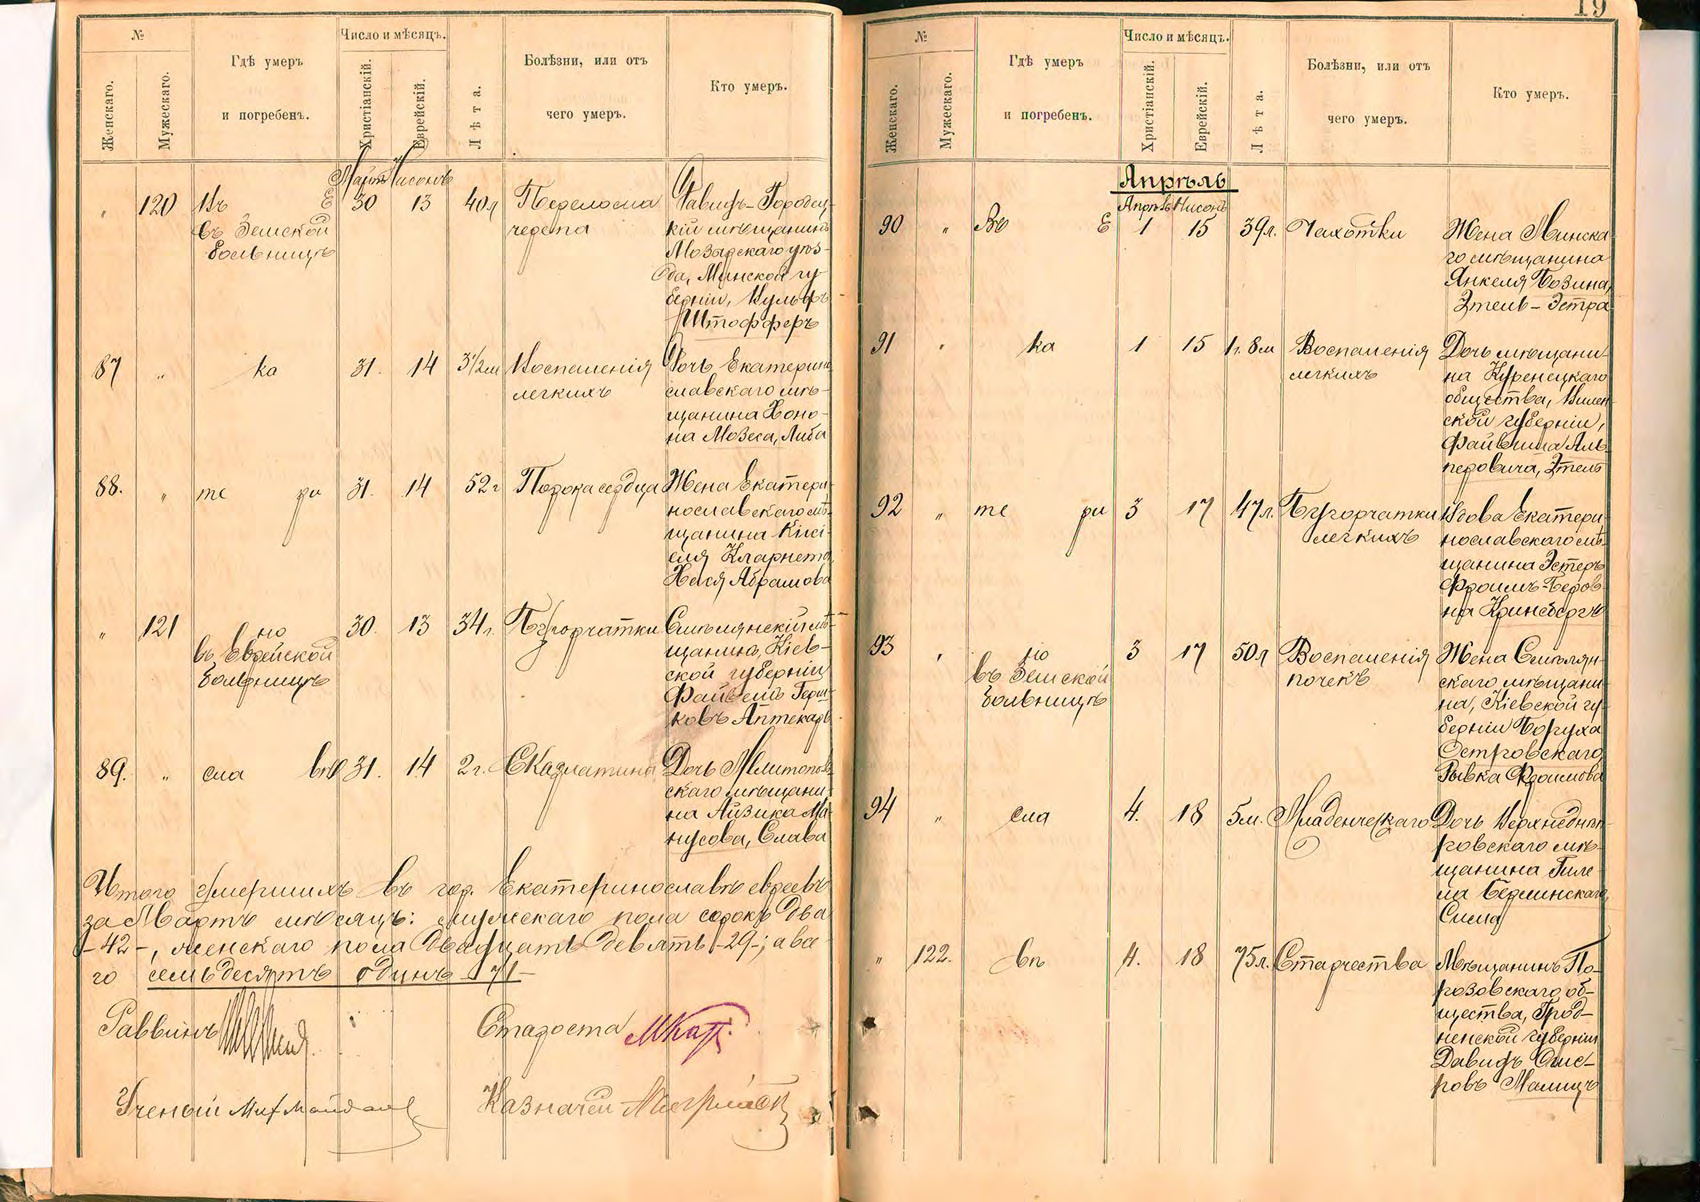 №
Женскаго.
Мужескаго.
Гдѣ умеръ
и погребенъ.
Число и мѣсяцъ.
Христіанскій.
Еврейскій.
Лѣта.
Болѣзни, или отъ
чего умеръ.
Кто умеръ.
Мартъ Нисонъ
" 120 Въ Е 30 13 40л Перелома
въ Земской черепа
больницѣ
Давидъ-Городец-
кій мѣщанинъ
Мозырскаго уѣз-
да, Минской гу-
берніи, Вульфъ
Штофферъ
87 " ка 31. 14 3½м Воспаленія
легкихъ
Дочь Екатерино
славскаго мѣ-
щанина Хоно-
на Мозеса, Либа
88. " те ри 31. 14 52г Порока сердца
Жена Екатери-
нославскаго мѣ-
щанина Кісі-
еля Кларнета
Хася Абрамова
" 121 но 30. 13 34г. Бугорчатки
въ Еврейской
больницѣ
Смѣлянскій мѣ-
щанина, Кіев-
ской губерніи
Файвель Герш-
ковъ Аптекарь
89. " сла вѣ 31. 14 2г. Скарлатина
Дочь Мелитополь-
скаго мѣщани-
на Айзика Ма-
нусова, Слава
Итого умершихъ въ гор. Екатеринославѣ евреевъ
за Мартъ мѣсяцъ: мужскаго пола сорокъ два
-42-, женскаго пола двадцать девять -29-; а все-
го семьдесятъ одинъ -71-
Раввинъ
Староста М Кац.
Ученый
Казначей
19
№
Женскаго.
Мужескаго.
Гдѣ умеръ
и погребенъ.
Число и мѣсяцъ.
Христіанскій.
Еврейскій.
Лѣта.
Болѣзни, или отъ
чего умеръ.
Кто умеръ.
Апрѣль
Апрѣль Нисонъ
90 " Въ Е 1 15 39л. Чахотки
Жена Минска-
го мѣщанина
Янкеля Бозина,
Этель-Эстра
91 " ка 1 15 1г. 8м Воспаленія
легкихъ
Дочь мѣщани-
на Куренецкаго
общества, Вилен
ской губерніи,
Файвиша Аль-
перовича, Этель
92 " те ри 3 17 47л. Бугорчатки
легкихъ
Вдова Екатери-
нославскаго мѣ-
щанина Эстеръ
Фроимъ-Беров-
на Кринсбергъ
93 " но 3 17 50л Воспаленія
въ Земской почекъ
больницѣ
Жена Смѣлян-
скаго мѣщани-
на, Кіевской гу-
берніи Боруха
Островскаго,
Рывка Фроимова
94 " сла 4. 18 5м. Младенческаго
Дочь Верхнеднѣп-
ровскаго мѣ-
щанина Гиле-
ла Берлинскаго,
Сима
" 122. вѣ 4. 18 75л. Старчества
Мѣщанинъ По-
розовскаго об-
щества, Грод-
ненской губерніи
Давидъ
ровъ Малицъ